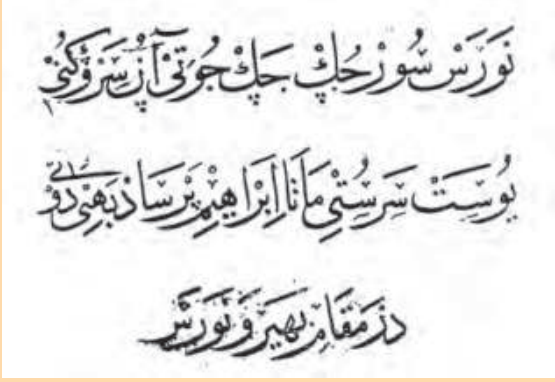 نَورَسْ سُورْ جُڮْ جَڮْ جُوتِيْ آنْ سَرْوڮُنِيْ
يُوسَتْ سَرَسُتِيْ مَاتَا اِبْرَاهِيْم پَرَسَادْ بَهِيْ دُونِيْ
دَرْ مَقَامِ بَهِيَرْوْ نَورَسْ